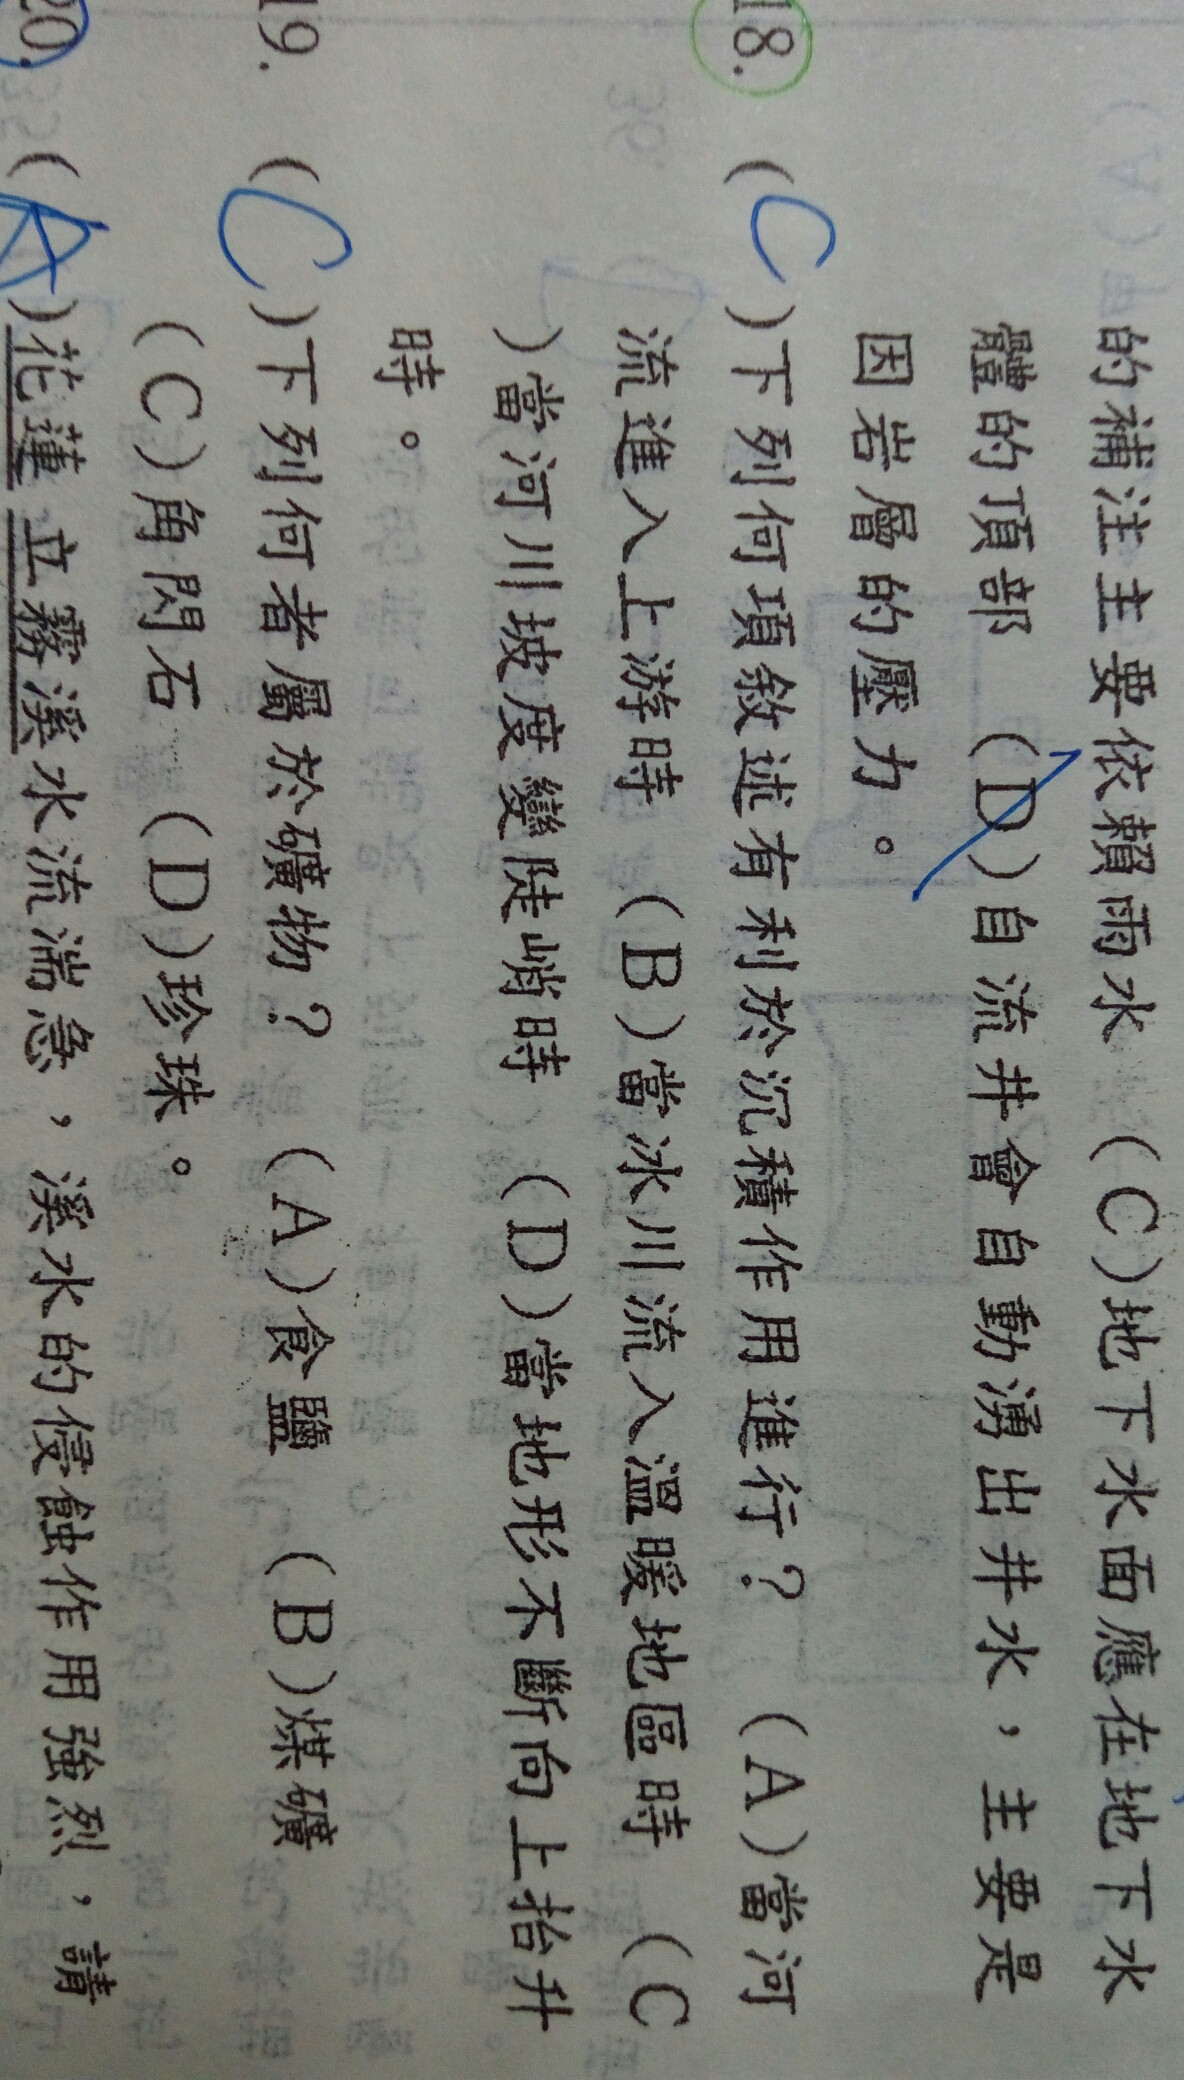 的補注主要依賴雨水 (C)地下水面應在地下水
體的頂部 (D)自流井會自動湧出井水，主要是
因岩層的壓力。
18. (C)下列何項敘述有利於沉積作用進行？ (A)當河
流進入上游時 (B)當冰川流入溫暖地區時 (C
)當河川坡度變陡峭時 (D)當地形不斷向上抬升
時。
19. (C)下列何者屬於礦物？ (A)食鹽 (B)煤礦
(C)角閃石 (D)珍珠。
20. (A)花蓮 立霧溪水流湍急，溪水的侵蝕作用強烈，請